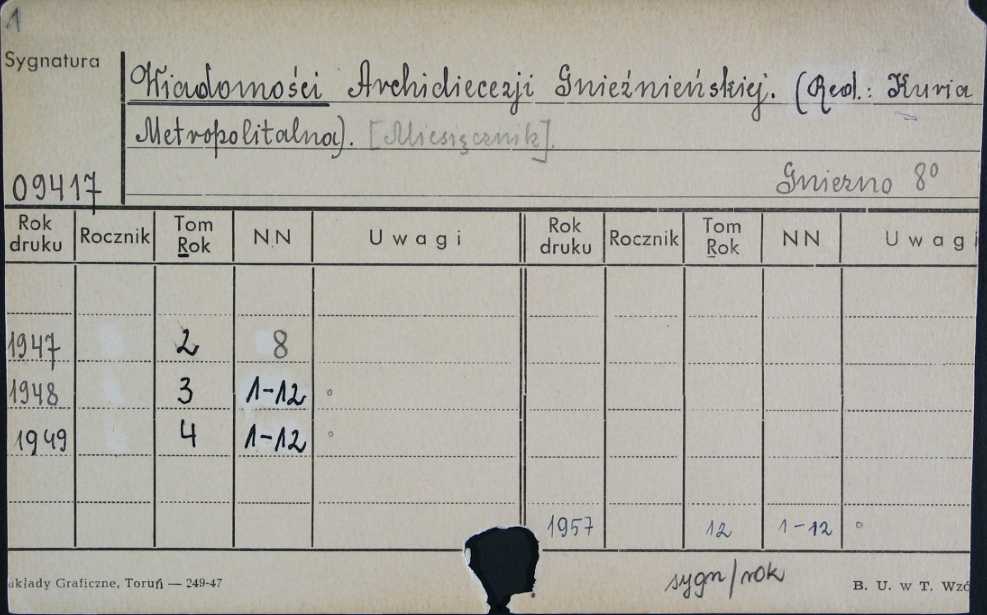 1
Sygnatura
Wiadomości Archidiecezji Gnieźnieńskiej. (Red.: Kuria
Metropolitalna). [Miesięcznik].
09417
Gniezno 8°
Rok druku Rocznik Tom Rok NN Uwagi Rok druku Rocznik Tom Rok NN Uwagi
1947 2 8
1948 3 1-12 °
1949 4 1-12 °
1957 12 1-12 °
sygn/rok
akłady Graficzne, Toruń — 249-47
B. U. w T. Wzó